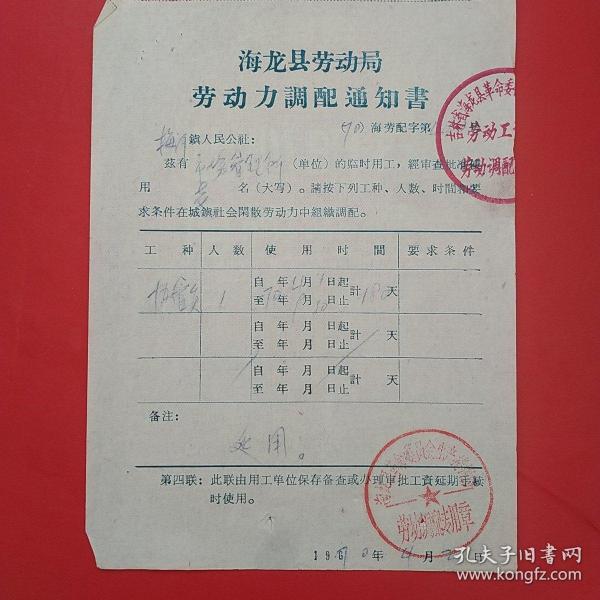 海龙县劳动局
劳动力調配通知書
(70)海劳配字第
梅河鎮人民公社:
兹有(单位)的临时用工,經审查批准
用 名(大写)。請按下列工种、人数、时間和要
求条件在城鎮社会閑散劳动力中組織調配。
工种 人数 使用时間 要求条件
1 自 年 月 1日起 至 年 月 30日止 計180天
自 年 月 日起 至 年 月 日止 計 天
自 年 月 日起 至 年 月 日止 計 天
备注:
延用。
第四联:此联由用工单位保存备查或办理审批工資延期手续
时使用。
1970年4月 日
吉林省海龙县革命委
劳动工
劳动調配
劳动調配专用章
孔夫子旧書网
www.kongfz.com